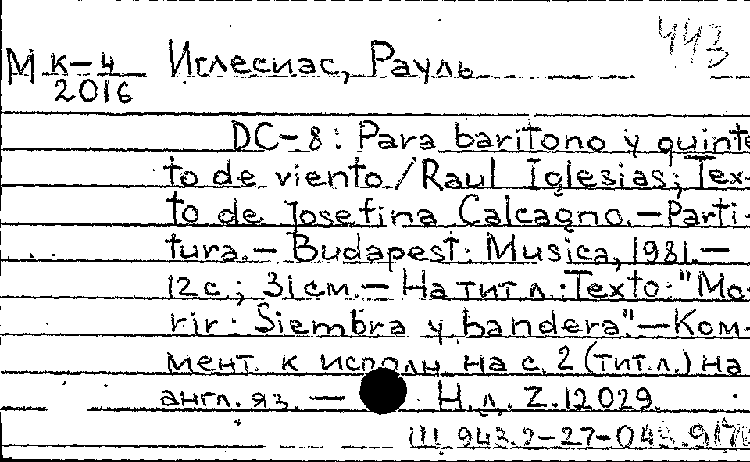 443
М к-4 Иглесиас, Рауль
2016
DC-8: Para baritono y quinte
to de viento/Raul Iglesias; Tex-
to de Josefina Calcagno.-Parti-
tura.- Budapest: Musica, 1981.-
12 с.; 31 см.- На тит л.:Texto:"Mo-
rir: Siembra y bandera".-Ком-
мент. к исполн. на с. 2 (тит.л.) на
англ. яз. - Н. л. Z.12029.
Ш 943.2-27-048.